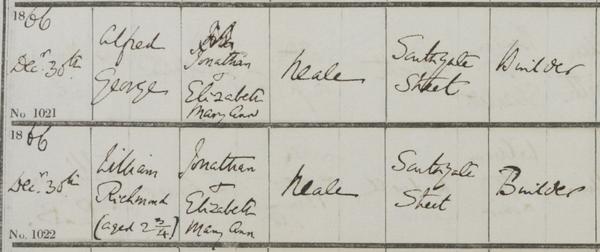 1866
Decr. 30th.
No 1021
Alfred
George
Jonathan
&
Elizabeth
Mary Ann
Neale
Southgate
Street
Builder
1866
Decr. 30th.
No. 1022
William
Richmond
(aged 2 3/4)
Jonathan
&
Elizabeth
Mary Ann
Neale
Southgate
Street
Builder